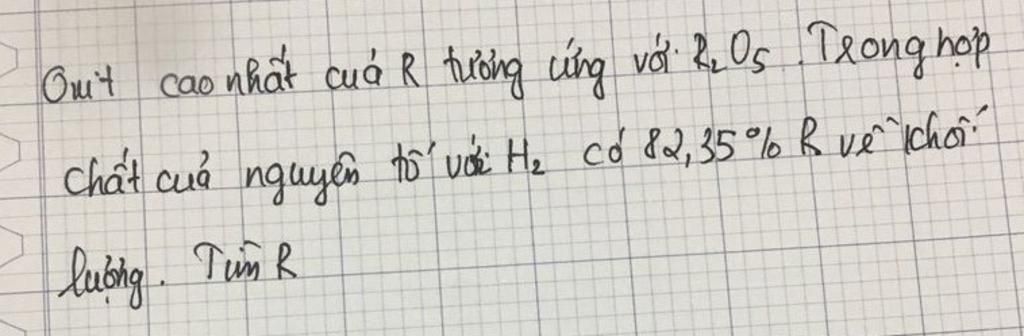 Oxit cao nhất của R tương ứng với R₂O₅. Trong hợp
chất của nguyên tố với H₂ có 82,35% R về khối
lượng. Tìm R